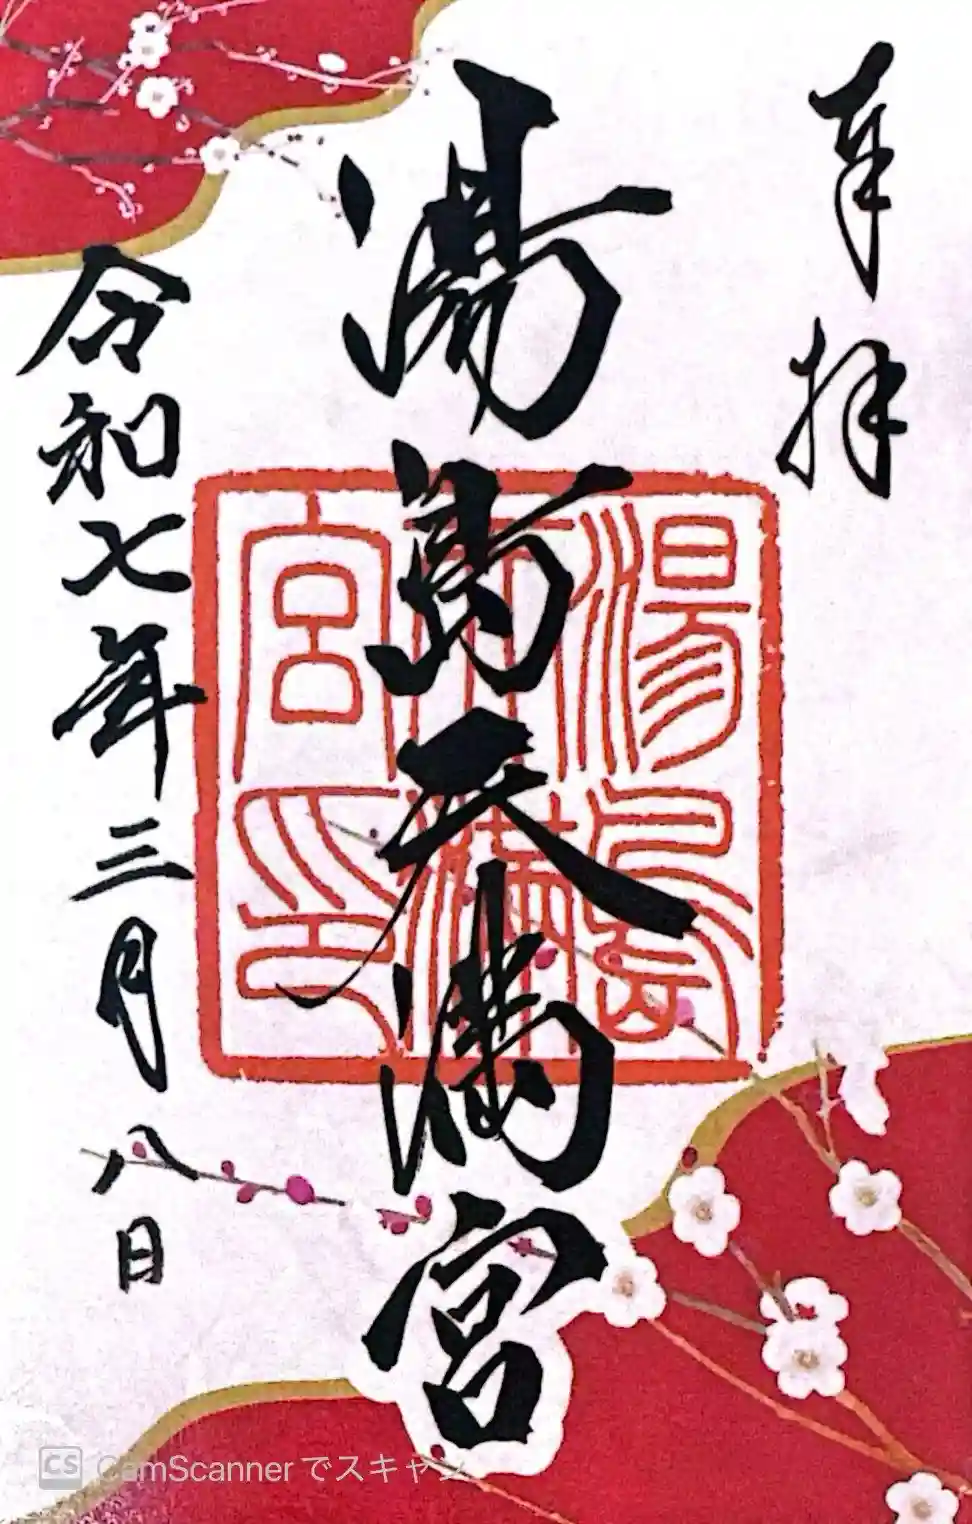 奉拝
湯島天満宮
湯島天満宮印
令和七年三月八日
CS CamScannerでスキャン